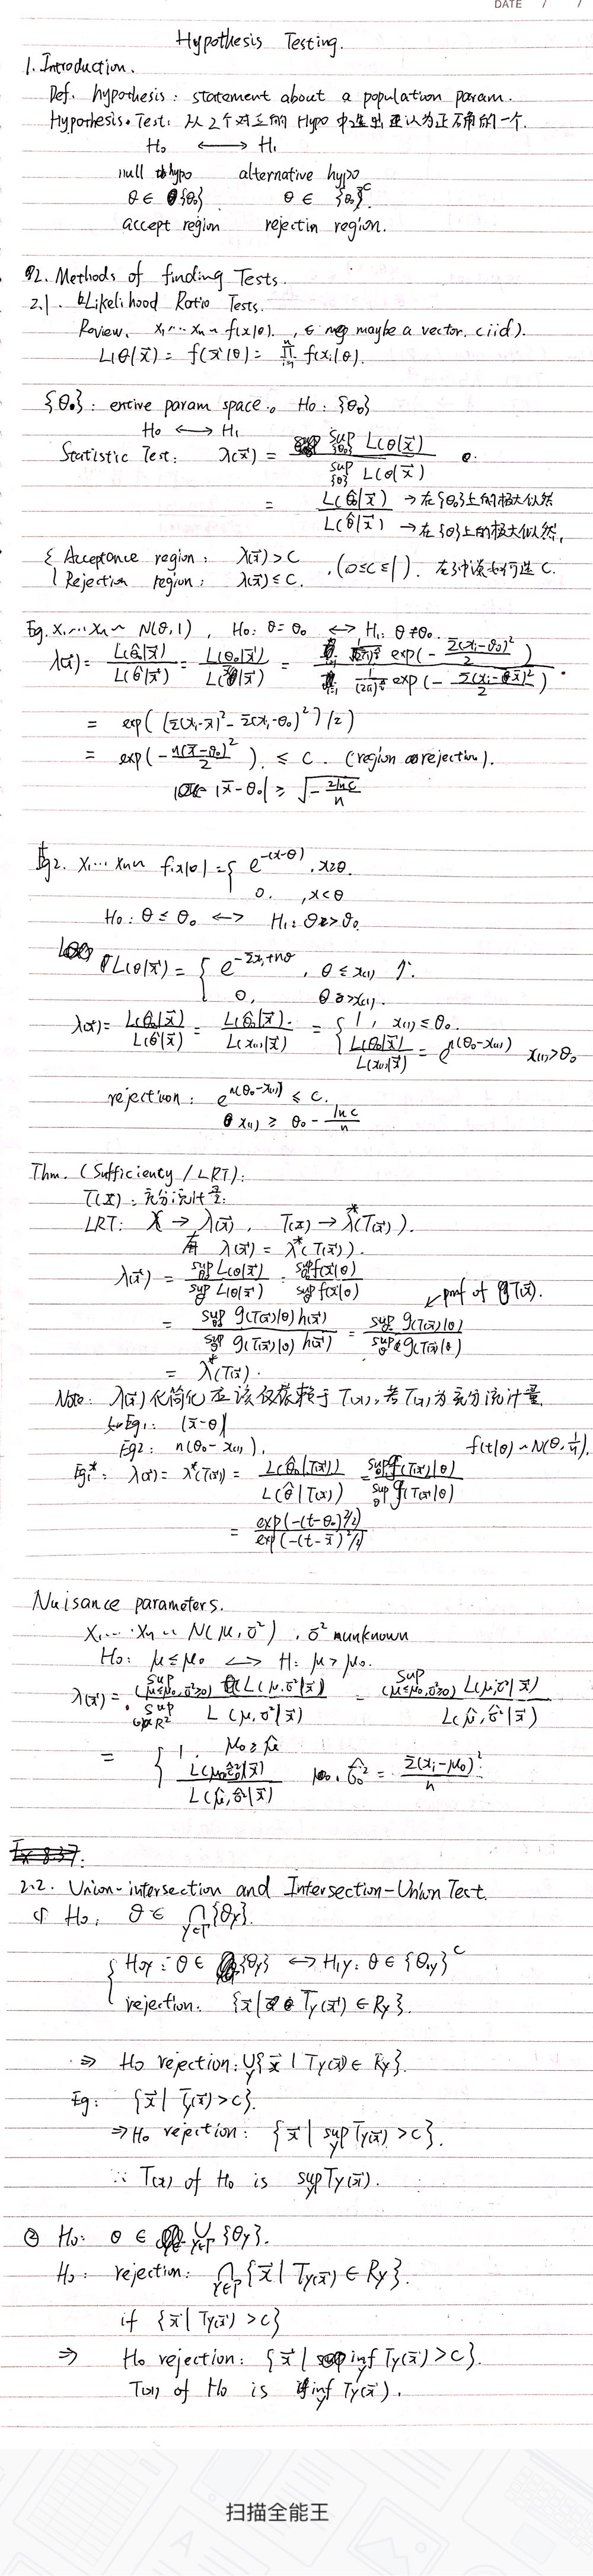 DATE / /
Hypothesis Testing.
1. Introduction.
Def. hypothesis: statement about a population param.
Hypothesis Test: 从2个对立的 Hypo 中选出更认为正确的一个.
H₀ ⟷ H₁
null hypo alternative hypo
θ ∈ {θ₀} θ ∈ {θ₀}ᶜ
accept region rejectin region.
2. Methods of finding Tests.
2.1. Likelihood Ratio Tests.
Review. x₁…xₙ ~ f(x|θ), maybe a vector. (iid).
L(θ|x⃗) = f(x⃗|θ) = ∏ f(xᵢ|θ).
{θ₀}: entire param space. H₀: {θ₀}
H₀ ⟷ H₁
Statistic Test: λ(x⃗) = sup_{θ₀} L(θ|x⃗) / sup_{θ} L(θ|x⃗)
= L(θ̂₀|x⃗) / L(θ̂|x⃗) → 在{θ₀}上的极大似然 → 在{θ}上的极大似然.
{ Acceptance region: λ(x⃗) > C
Rejection region: λ(x⃗) ≤ C. , (0≤C≤1). 在3中谈如何选 C.
Eg. x₁…xₙ ~ N(θ,1), H₀: θ=θ₀ ⟷ H₁: θ≠θ₀.
λ(x⃗) = L(θ̂₀|x⃗)/L(θ̂|x⃗) = L(θ₀|x⃗)/L(x̄|x⃗) = exp(-Σ(xᵢ-θ₀)²/2) / exp(-Σ(xᵢ-x̄)²/2)
= exp((Σ(xᵢ-x̄)² - Σ(xᵢ-θ₀)²)/2)
= exp(-n(x̄-θ₀)²/2) ≤ C. (region of rejection).
|x̄-θ₀| ≥ √(-2lnC/n)
Eg2. x₁…xₙ ~ f(x|θ) = { e^{-(x-θ)}, x≥θ.
0, x<θ
H₀: θ≤θ₀ ⟷ H₁: θ>θ₀.
L(θ|x⃗) = { e^{-Σxᵢ+nθ}, θ≤x₍₁₎ ↑.
0, θ>x₍₁₎.
λ(x⃗) = L(θ̂₀|x⃗)/L(θ̂|x⃗) = L(θ̂₀|x⃗)/L(x₍₁₎|x⃗) = { 1, x₍₁₎≤θ₀.
L(θ₀|x⃗)/L(x₍₁₎|x⃗) = e^{n(θ₀-x₍₁₎)} x₍₁₎>θ₀
rejection: e^{n(θ₀-x₍₁₎)} ≤ C.
x₍₁₎ ≥ θ₀ - lnC/n
Thm. (Sufficiency / LRT):
T(X): 充分统计量.
LRT: X → λ(x⃗), T(x) → λ*(T(x⃗)).
有 λ(x⃗) = λ*(T(x⃗)).
λ(x⃗) = sup L(θ|x⃗) / sup L(θ|x⃗) = sup f(x⃗|θ) / sup f(x⃗|θ)
pmf of T(x⃗).
= sup g(T(x⃗)|θ) h(x⃗) / sup g(T(x⃗)|θ) h(x⃗) = sup g(T(x⃗)|θ) / sup g(T(x⃗)|θ)
= λ*(T(x⃗)).
Note: λ(x⃗) 化简化应该仅依赖于 T(x), 若 T(x) 为充分统计量
如 Eg1: |x̄-θ|
Eg2: n(θ₀-x₍₁₎). f(t|θ) ~ N(θ, 1/n).
Eg1*: λ(x⃗) = λ*(T(x⃗)) = L(θ̂₀|T(x⃗)) / L(θ̂|T(x⃗)) = sup f(T(x⃗)|θ) / sup f(T(x⃗)|θ)
= exp(-(t-θ₀)²/2) / exp(-(t-x̄)²/2)
Nuisance parameters.
X₁…Xₙ ~ N(μ,σ²), σ² unknown
H₀: μ≤μ₀ ⟷ H₁: μ>μ₀.
λ(x⃗) = sup_{(μ≤μ₀,σ²≥0)} L(μ,σ²|x⃗) / sup L(μ,σ²|x⃗) = sup_{(μ≤μ₀,σ²≥0)} L(μ,σ²|x⃗) / L(μ̂,σ̂²|x⃗)
= { 1. μ₀≥μ̂
L(μ₀,σ̂₀²|x⃗) / L(μ̂,σ̂²|x⃗) σ̂₀² = Σ(xᵢ-μ₀)²/n
Ex 8.37.
2.2. Union-intersection and Intersection-Union Test.
① H₀: θ ∈ ⋂_{γ∈Γ} {θγ}.
{ H₀γ: θ ∈ {θγ} ⟷ H₁γ: θ ∈ {θγ}ᶜ
rejection: {x⃗ | Tγ(x⃗) ∈ Rγ}.
⇒ H₀ rejection: ⋃_γ {x⃗ | Tγ(x⃗) ∈ Rγ}.
Eg: {x⃗ | Tγ(x⃗) > C}.
⇒ H₀ rejection: {x⃗ | sup_γ Tγ(x⃗) > C}.
∴ T(x) of H₀ is sup_γ Tγ(x⃗).
② H₀: θ ∈ ⋃_{γ∈Γ} {θγ}.
H₀: rejection: ⋂_{γ∈Γ} {x⃗ | Tγ(x⃗) ∈ Rγ}.
if {x⃗ | Tγ(x⃗) > C}
⇒ H₀ rejection: {x⃗ | inf_γ Tγ(x⃗) > C}.
T(x) of H₀ is inf_γ Tγ(x⃗).
扫描全能王